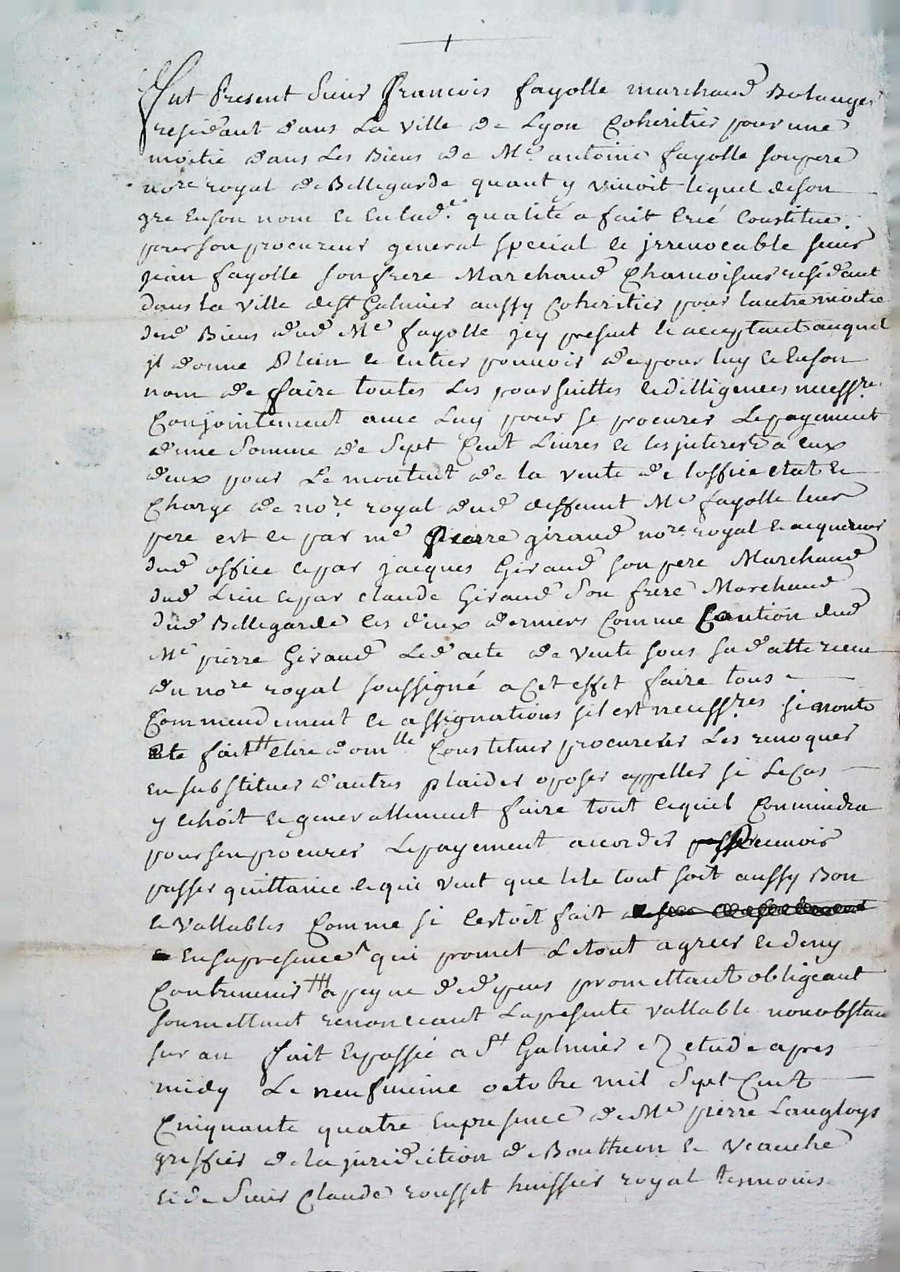 Fut Present Sieur francois fayolle marchand Bolanger
residant dans La ville de Lyon Coheritier pour une
moitié dans Les Biens de Me antoine fayolle son pere
nore royal de Bellegarde quant y vivoit lequel de son
gre en son nom et en lad.e qualité a fait crée Constitue
pour son procureur general special et jrrevocable sieur
jean fayolle son frere Marchand Chamoiseur residant
dans la ville de st Galmier aussy Coheritier pour lautre moitié
desd Biens dud Me fayolle jcy present et acceptant auquel
jl donne Plein et entier pouvoir de pour luy et en son
nom de faire toutes Les poursuittes et dilligences necessres
Conjointement avec Luy pour se procurer Le payement
d'une Somme de Sept Cent Livres et les jnterests a eux
deux pour Le montent de la vente de loffice etat et
Charge de nore royal dud deffunt Me fayolle leur
pere est et par me Pierre giraud nore royal et acquereur
dud office et par jacques Giraud son pere Marchand
dud Lieu et par claude Giraud Son frere Marchand
dud Bellegarde les deux derniers Comme Caution dud
Me pierre Giraud Led acte de vente sous sa datte reçeu
du nore royal soussigné a Cet effet faire tous
Commendement et assignations sil est necessres si nonte
ete fait elire domlle Constituer procureur Les revoquer
en substituer d'autres plaider oposer appeller si Le Cas
y echoit et generallement faire tout ce quil Conviendra
pour sen procurer Le payement accorder recevoir
passer quittance et qui veut que le tout soit aussy Bon
et vallables Comme si c'estoit fait
En sa presence qui promet Le tout agreer et deny
Contrevenir a peyne de depens promettant obligeant
soumettant renonceant La presente vallable nonobstant
sur an fait et passé a St Galmier ez etude apres
midy Le neufvieme octobre mil Sept Cent
Cinquante quatre en presence de Me pierre Langloys
greffier de la juridiction de Bouttheon et Veauche
et de Sieur Claude rousset huissier royal temoins